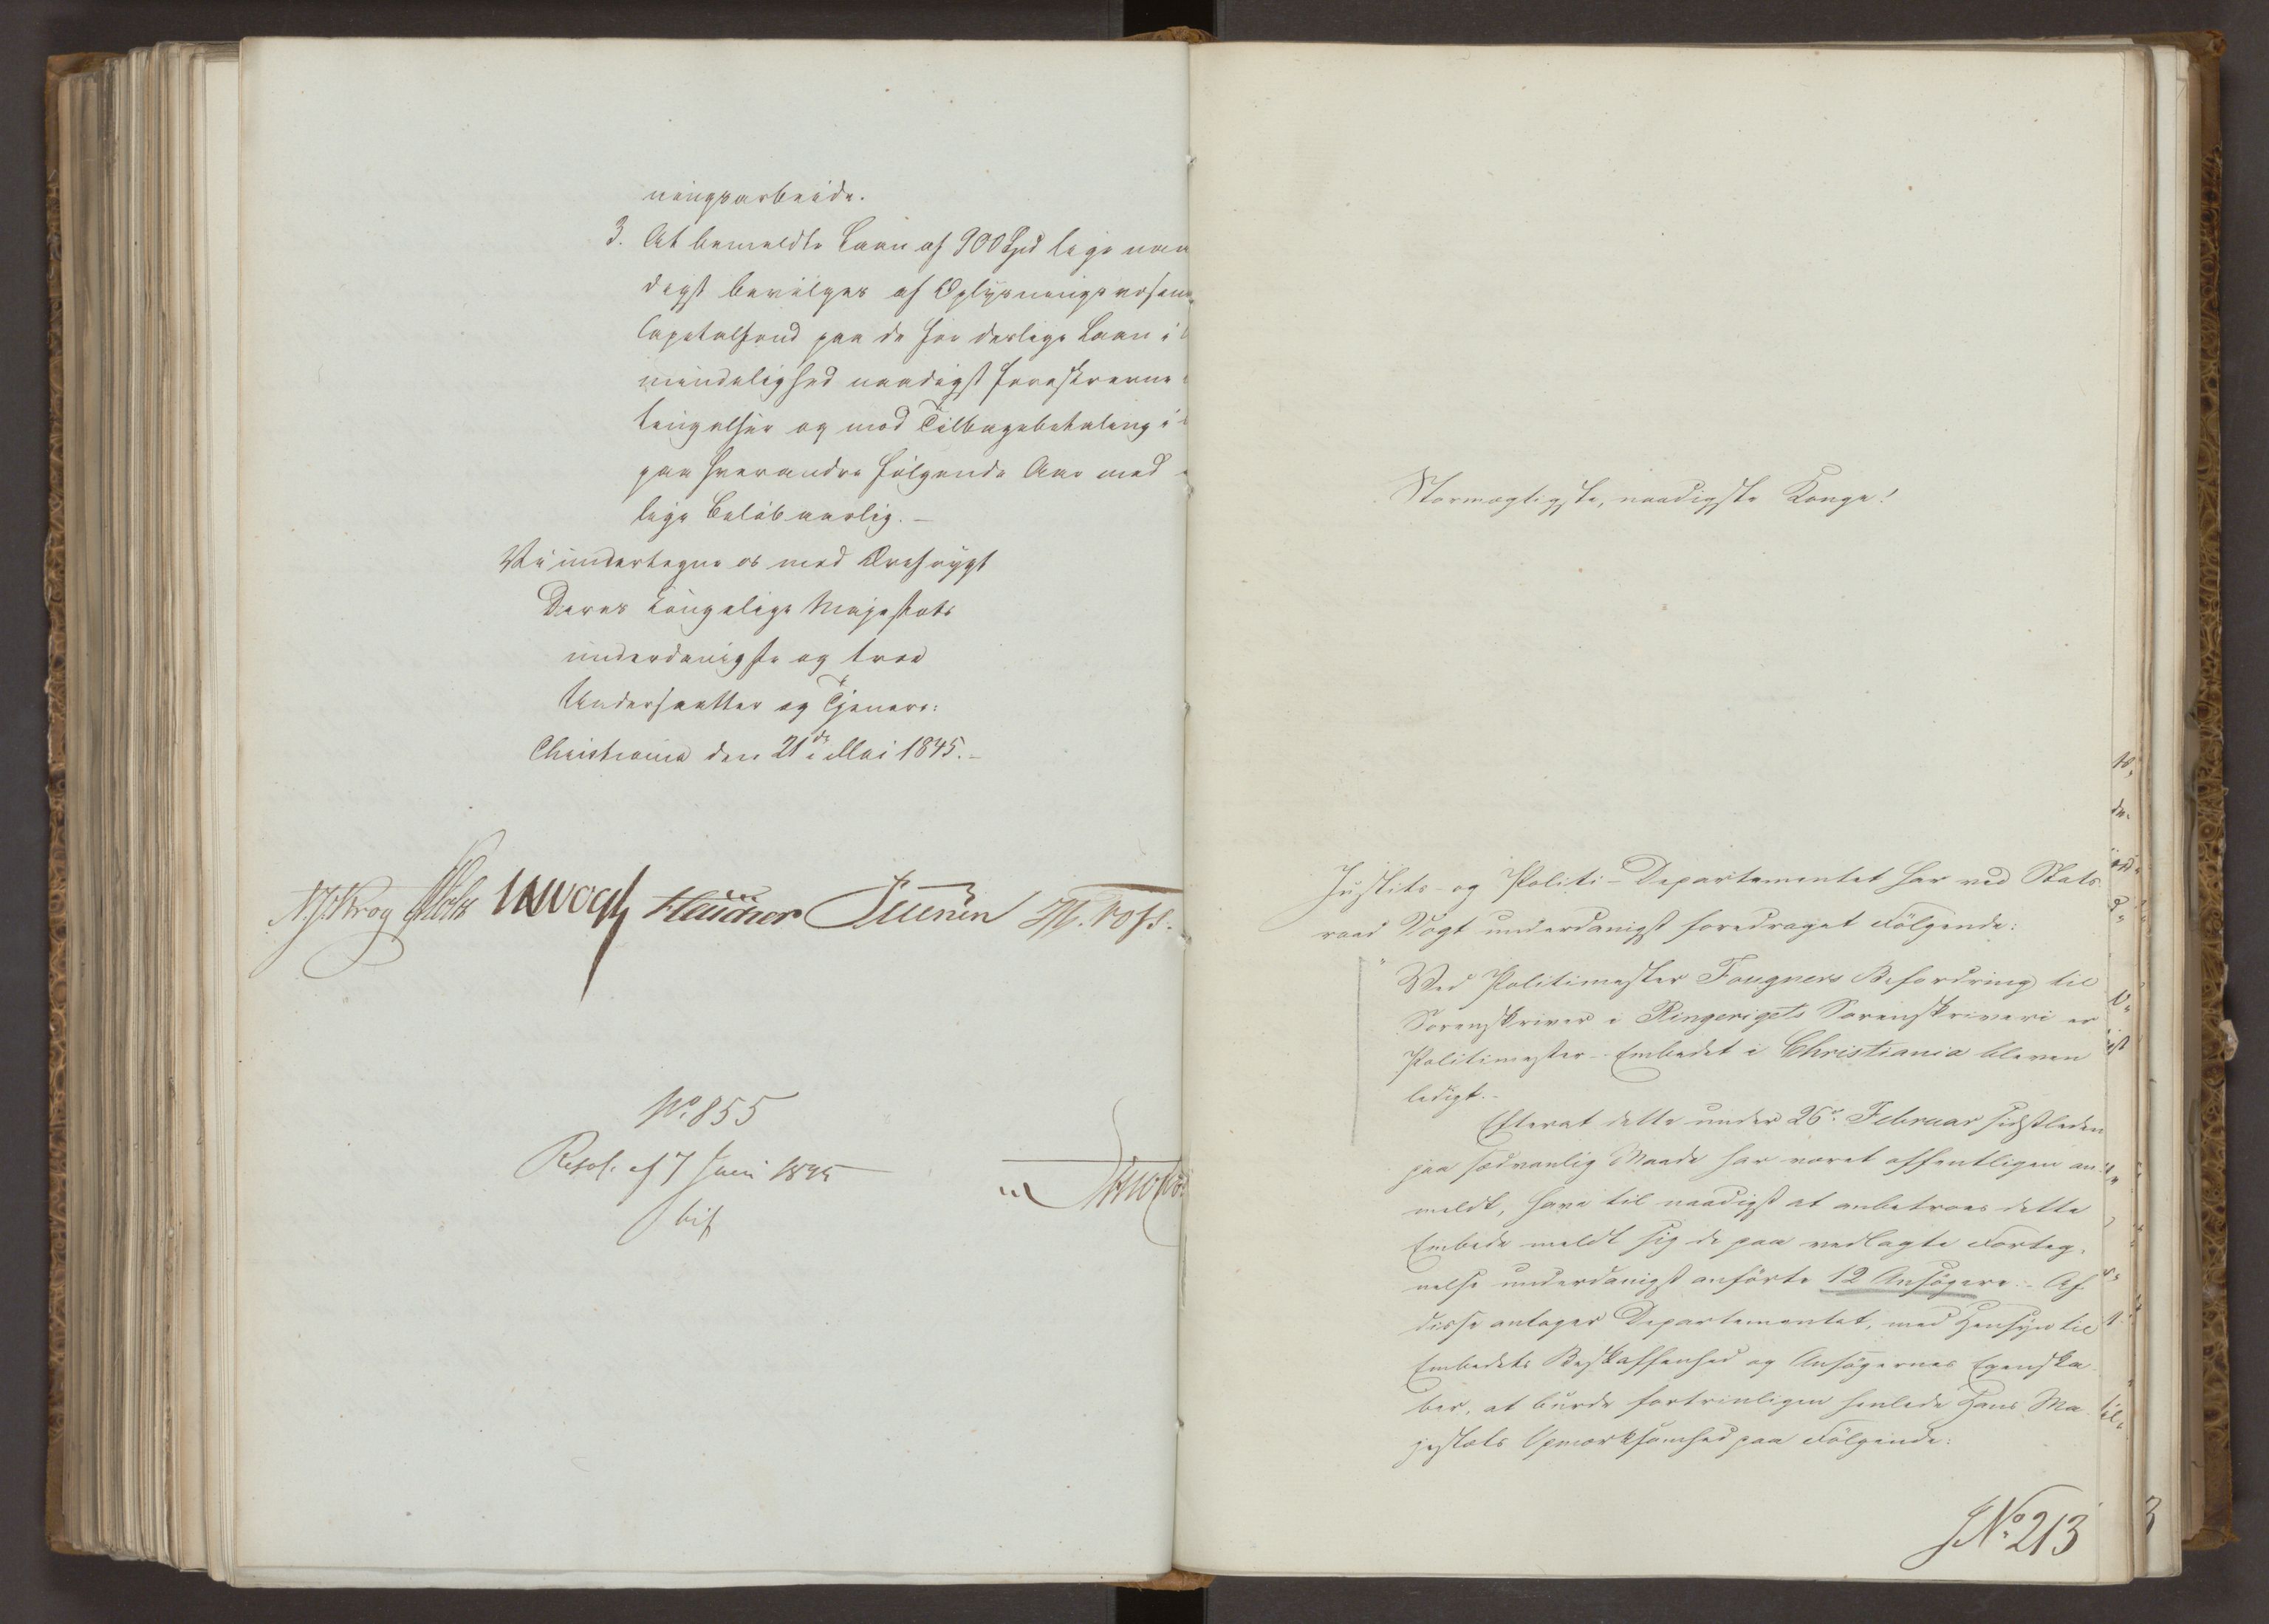 ningsarbeide.
3. At bemeldte Laan af 900 Spd lige naa
digst bevilges af Oplysningsvæsenets
Capitalfond paa de for deslige Laan i
mindelighed naadigst foreskrevne
tingelser og mod Tilbagebetaling i
paa hverandre følgende Aar med
lige Beløb aarlig. -
Vi undertegne os med Ærefrygt
Deres Kongelige Majestæts
underdanigste og troe
Undersaatter og Tjenere:
Christiania den 21de Mai 1845. -
N.J. Krog JHVogt
No. 855
Resol. af 7 Juni 1845
bif
Stormægtigste, naadigste Konge!
Justits- og Politi-Departementet har ved Stats
raad Vogt underdanigst foredraget Følgende:
"Ved Politimester Fougners Befordring til
Sorenskriver i Ringerigets Sorenskriveri er
Politimester-Embedet i Christiania bleven
ledigt. -
Efterat dette under 26de Februar sidstleden
paa sædvanlig Maade har været offentligen an-
meldt, have til naadigst at anbetroes dette
Embede meldt sig de paa vedlagte Forteg-
nelse underdanigst anførte 12 Ansøgere. - Af
disse antager Departementet, med Hensyn til
Embedets Beskaffenhed og Ansøgernes Egenska-
ber, at burde fortrinligen henlede Hans Ma-
jestæts Opmærksomhed paa Følgende:
JNo. 213